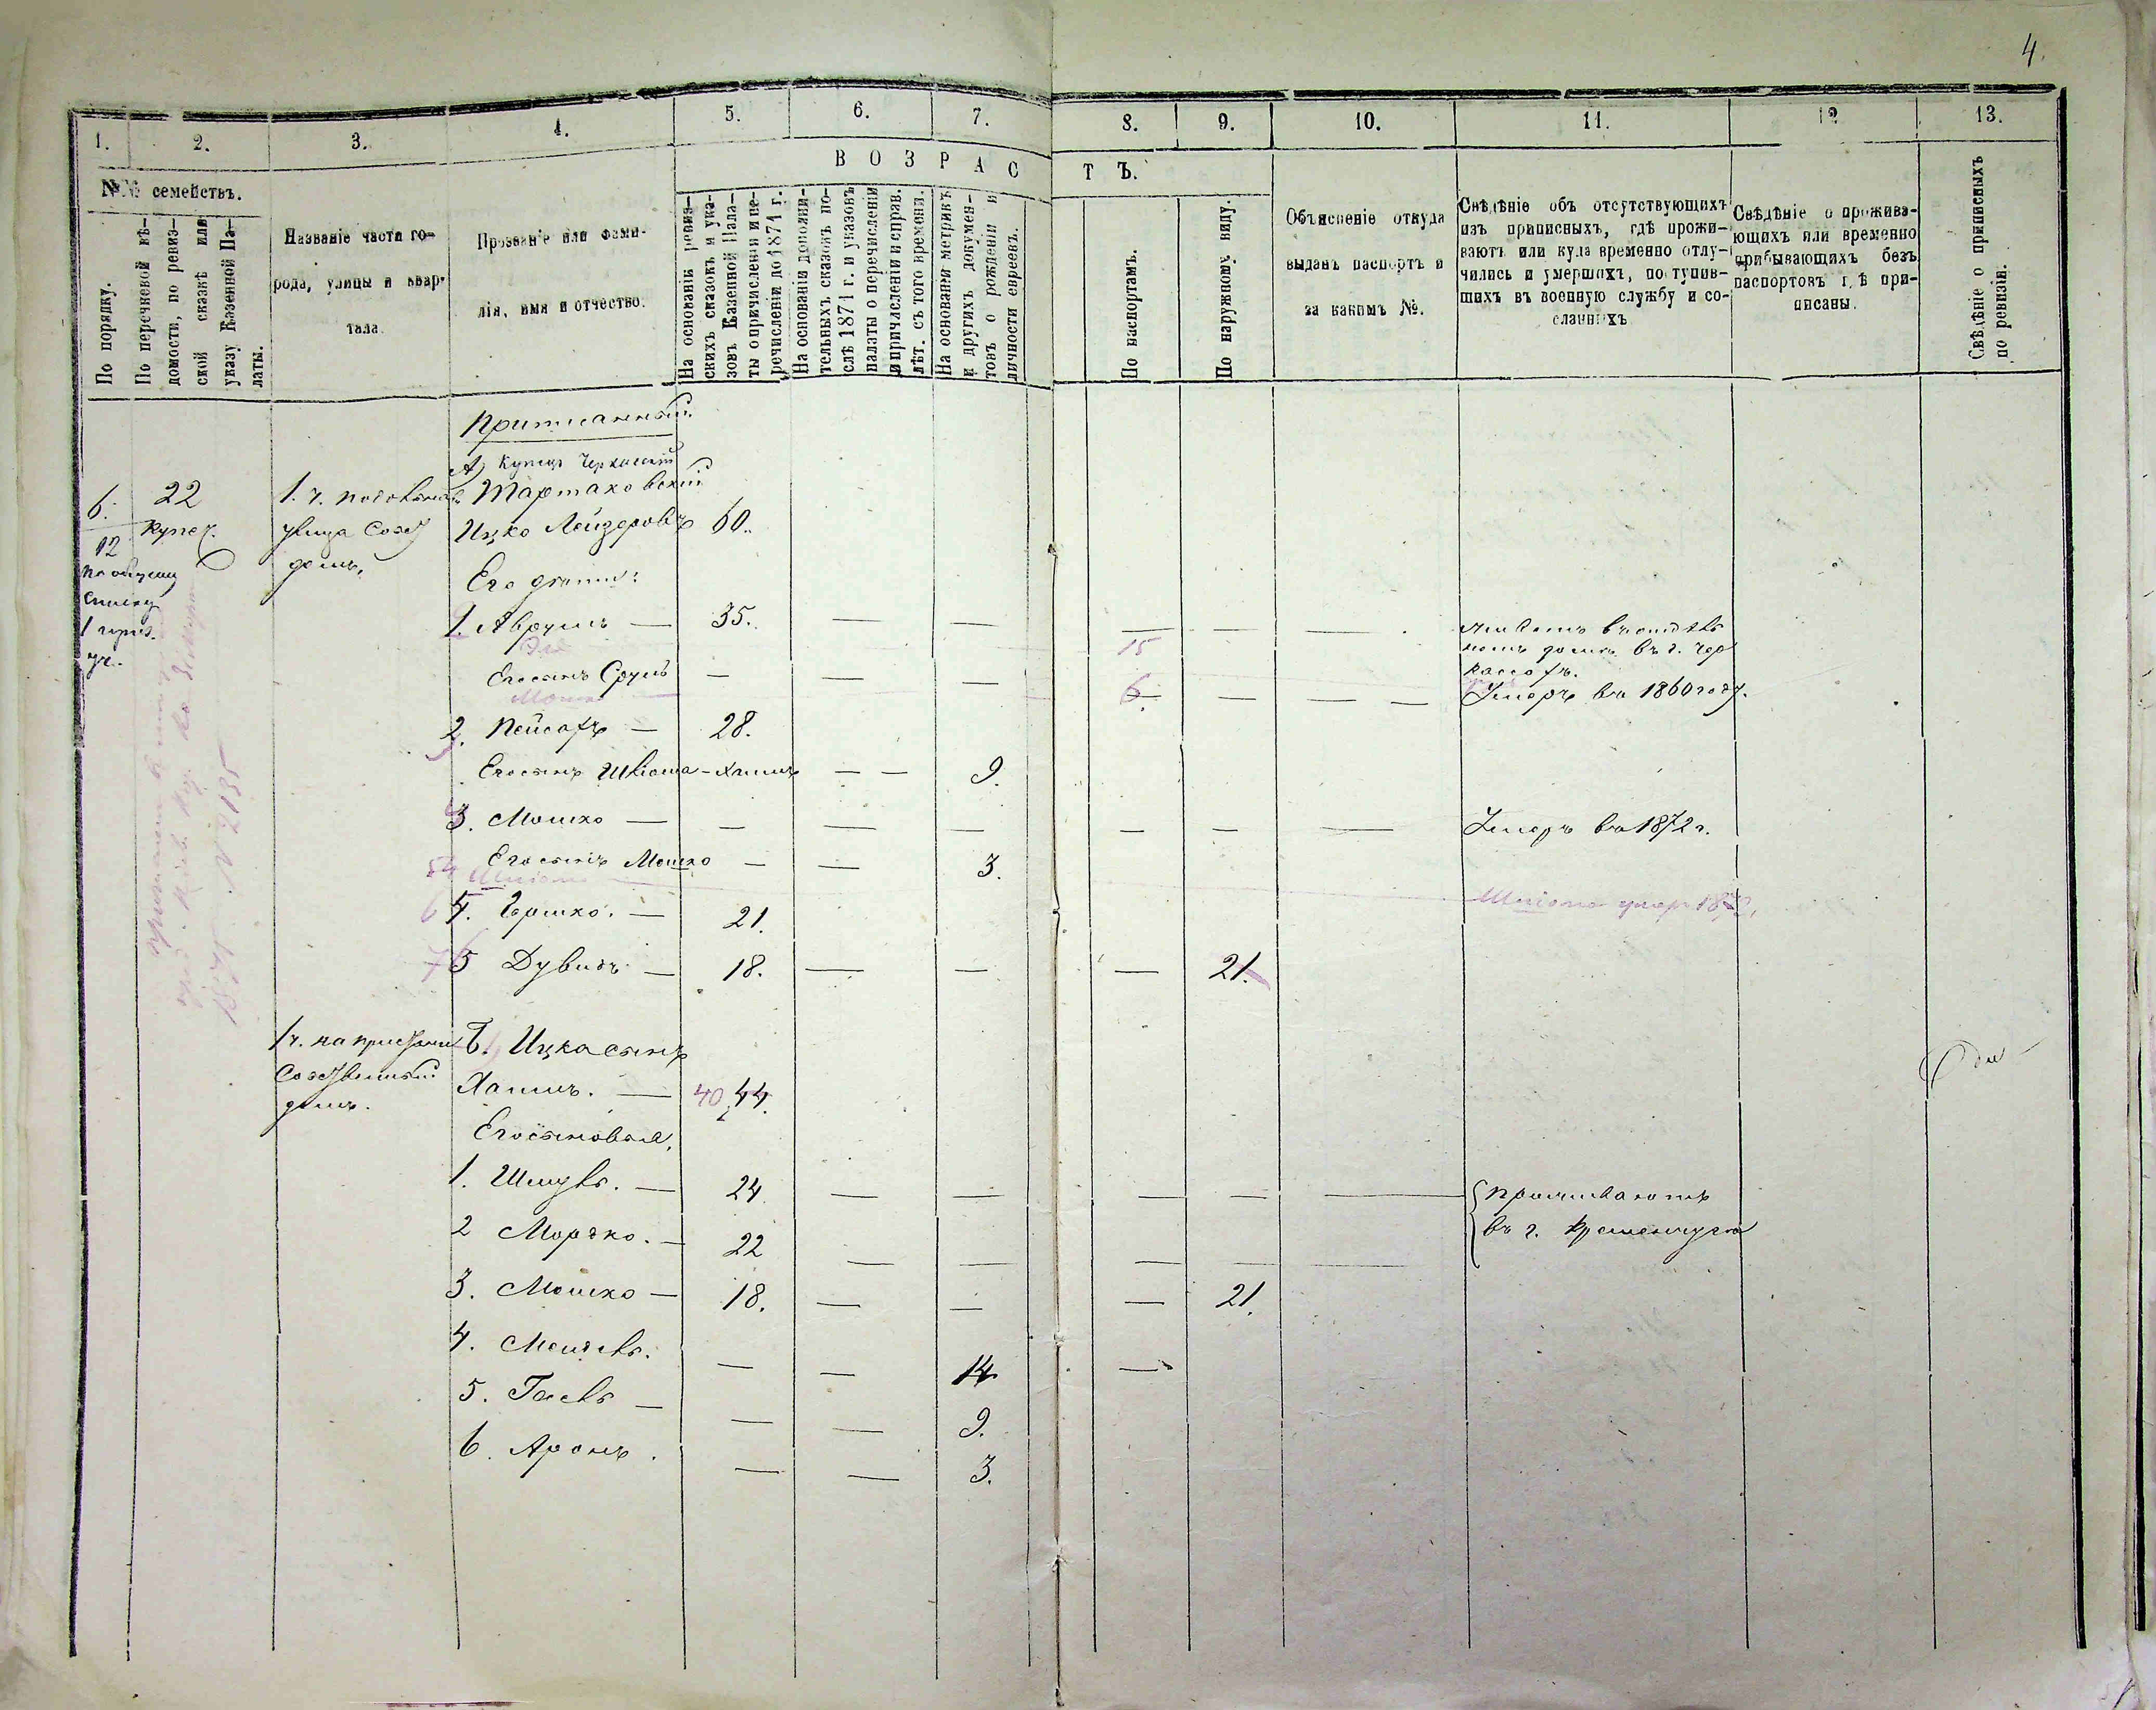 4.
1. 2. 3. 4. 5. 6. 7. 8. 9. 10. 11. 12 13.
№№ семействъ.
В О З Р А С Т Ъ.
По порядку.
По перечневой вѣ-
домости, по ревиз-
ской сказкѣ или
указу Казенной Па-
латы.
Названіе части го-
рода, улицы и квар-
тала.
Прозваніе или фами-
лія, имя и отчество.
На основаніи ревиз-
скихъ сказокъ и ука-
зовъ Казенной Пала-
ты о причисленіи и пе-
речисленіи до 1871 г.
На основаніи дополни-
тельныхъ сказокъ по-
слѣ 1871 г. и указовъ
палаты о перечисленіи
и причисленіи и справ.
лѣт. съ того времени.
На основаніи метрикъ
и другихъ докумен-
товъ о рожденіи и
личности евреевъ.
По паспортамъ.
По наружному виду.
Объясненіе откуда
выданъ паспортъ и
за какимъ №.
Свѣдѣніе объ отсутствующихъ
изъ приписныхъ, гдѣ прожи-
ваютъ или куда временно отлу-
чились и умершихъ, поступив-
шихъ въ военную службу и со-
сланныхъ
Свѣдѣніе о прожива-
ющихъ или временно
прибывающихъ безъ
паспортовъ гдѣ при-
писаны.
Свѣдѣніе о приписныхъ
по ревизіи.
Приписанный.
А) Купецъ Черкасскій
6. 22 1. ч. Тартаковскій
12 Купеч. улица Собст Ицко Лейзеровъ 60.
по общему домъ,
списку
1 приз.
уч.
Его дѣти:
1. Аврумъ — 35. — — — — — живетъ въ отдѣль
номъ домѣ въ г. Чер
кассахъ.
15
Его сынъ Срулъ — — — — — — Умеръ въ 1860 году.
Мошко
6.
2. Пейсахъ — 28.
Его сынъ Хаимъ — — 9.
3. Мошко — — — — — — — Умеръ въ 1872 г.
Его сынъ Мошко — — 3.
умер 187
4. Гершко. — 21.
5 Дувидъ — 18. — — — 21.
№ 2135
1 ч. на пристани Б. Ицка сынъ
Собственный Хаимъ. — 40 44.
домъ.
Его сыновья,
1. Шмуль. — 24 — — — — — Проживаютъ
2 Мордко. — 22 — — — — — въ г. Кременчугѣ
3. Мошко — 18. — — — 21.
4. — — 14 —
5. — — — 9.
6. Аронъ. — — 3.